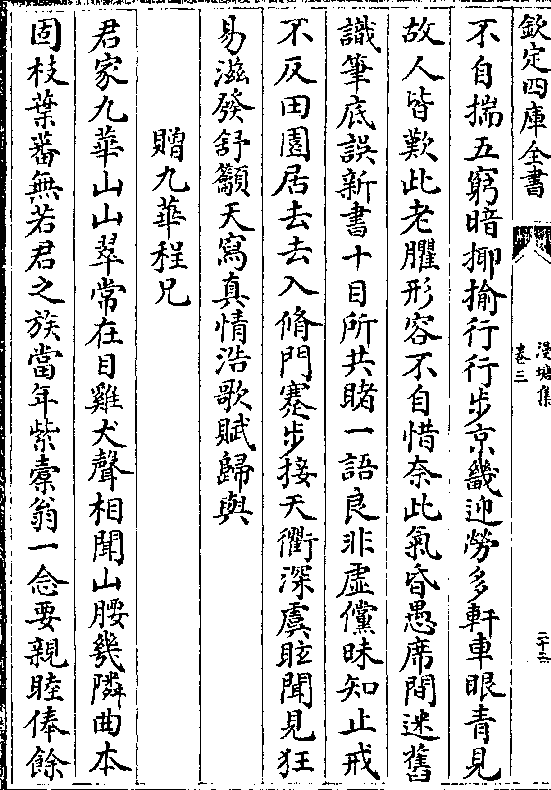 欽定四庫全書
漫塘集
卷三
二十六
不自揣五窮暗揶揄行行步京畿迎勞多軒車眼青見
故人皆歎此老臞形容不自惜奈此氣昏愚席間迷舊
識筆底誤新書十目所共睹一語良非虛儻昧知止戒
不反田園居去去入脩門蹇步接天衢深虞眩聞見狂
易滋發舒籲天寫真情浩歌賦歸與
贈九華程兄
君家九華山山翠常在目雞犬聲相聞山腰幾隣曲本
固枝葉蕃無若君之族當年紫橐翁一念要親睦俸餘